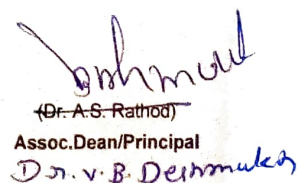 (Dr. A.S. Rathod)
Assoc.Dean/Principal
Dr. V. B. Deshmukh